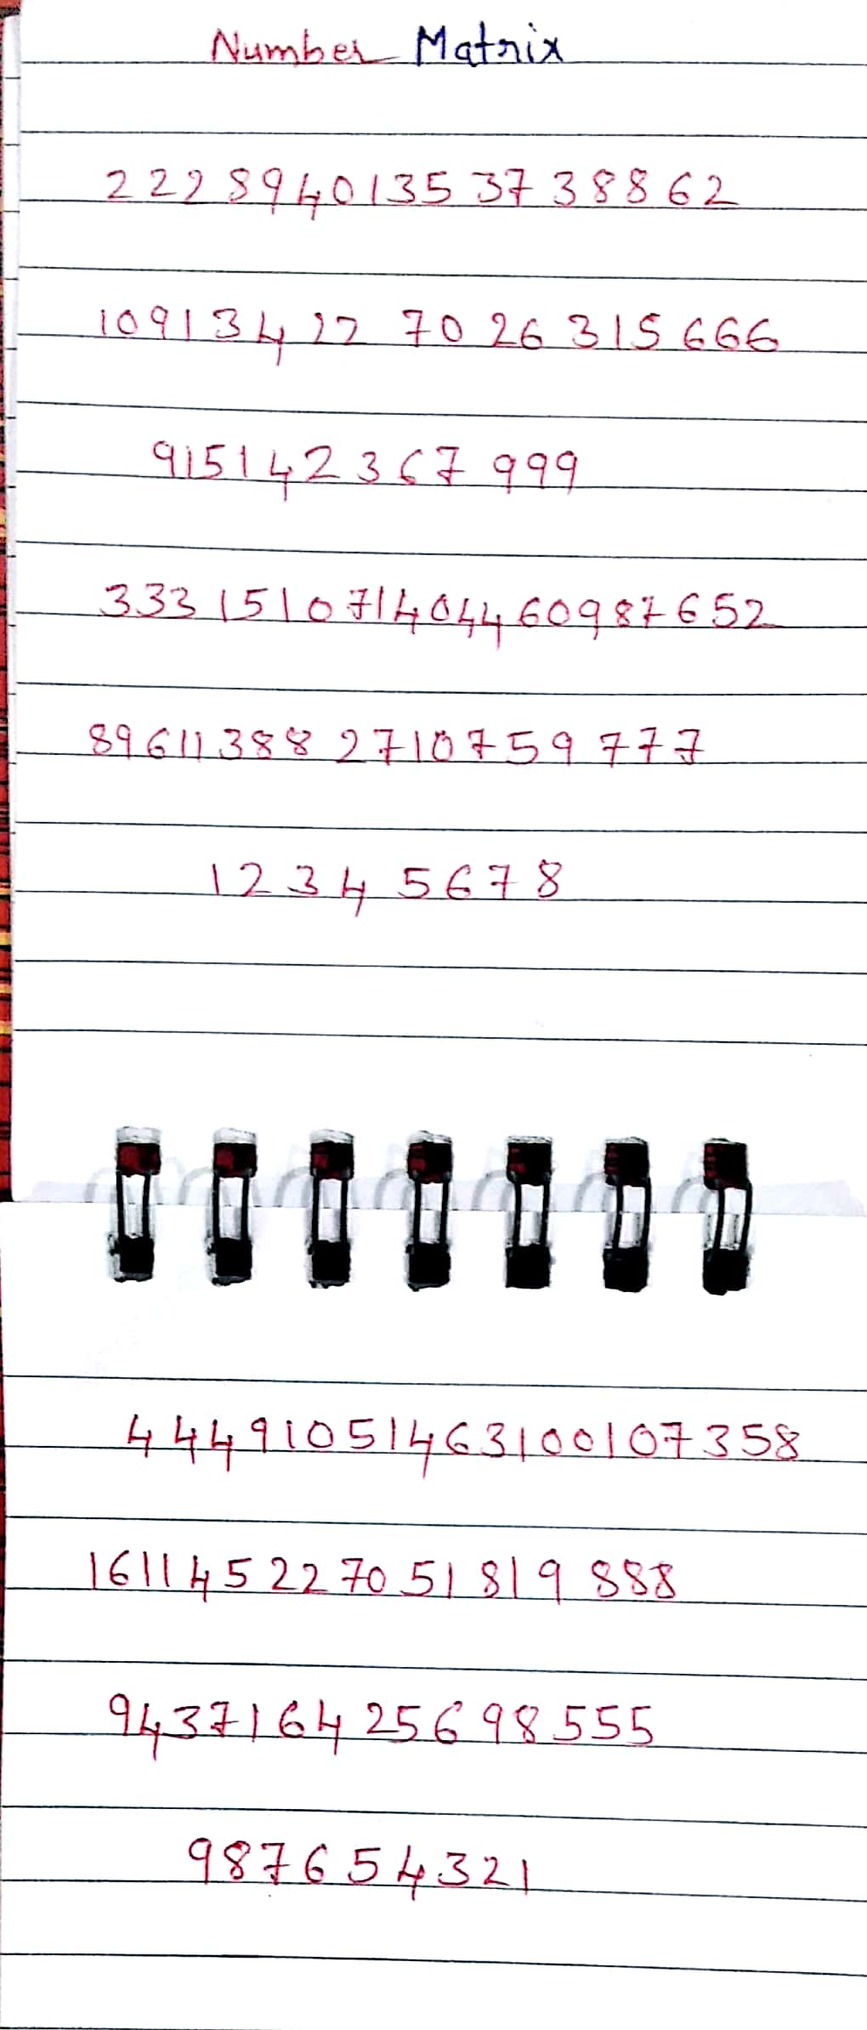 Number Matrix
22289401353738862
109134227026315666
915142367999
333151071404460987652
896113882710759777
12345678
44491051463100107358
161145227051819888
943716425698555
987654321